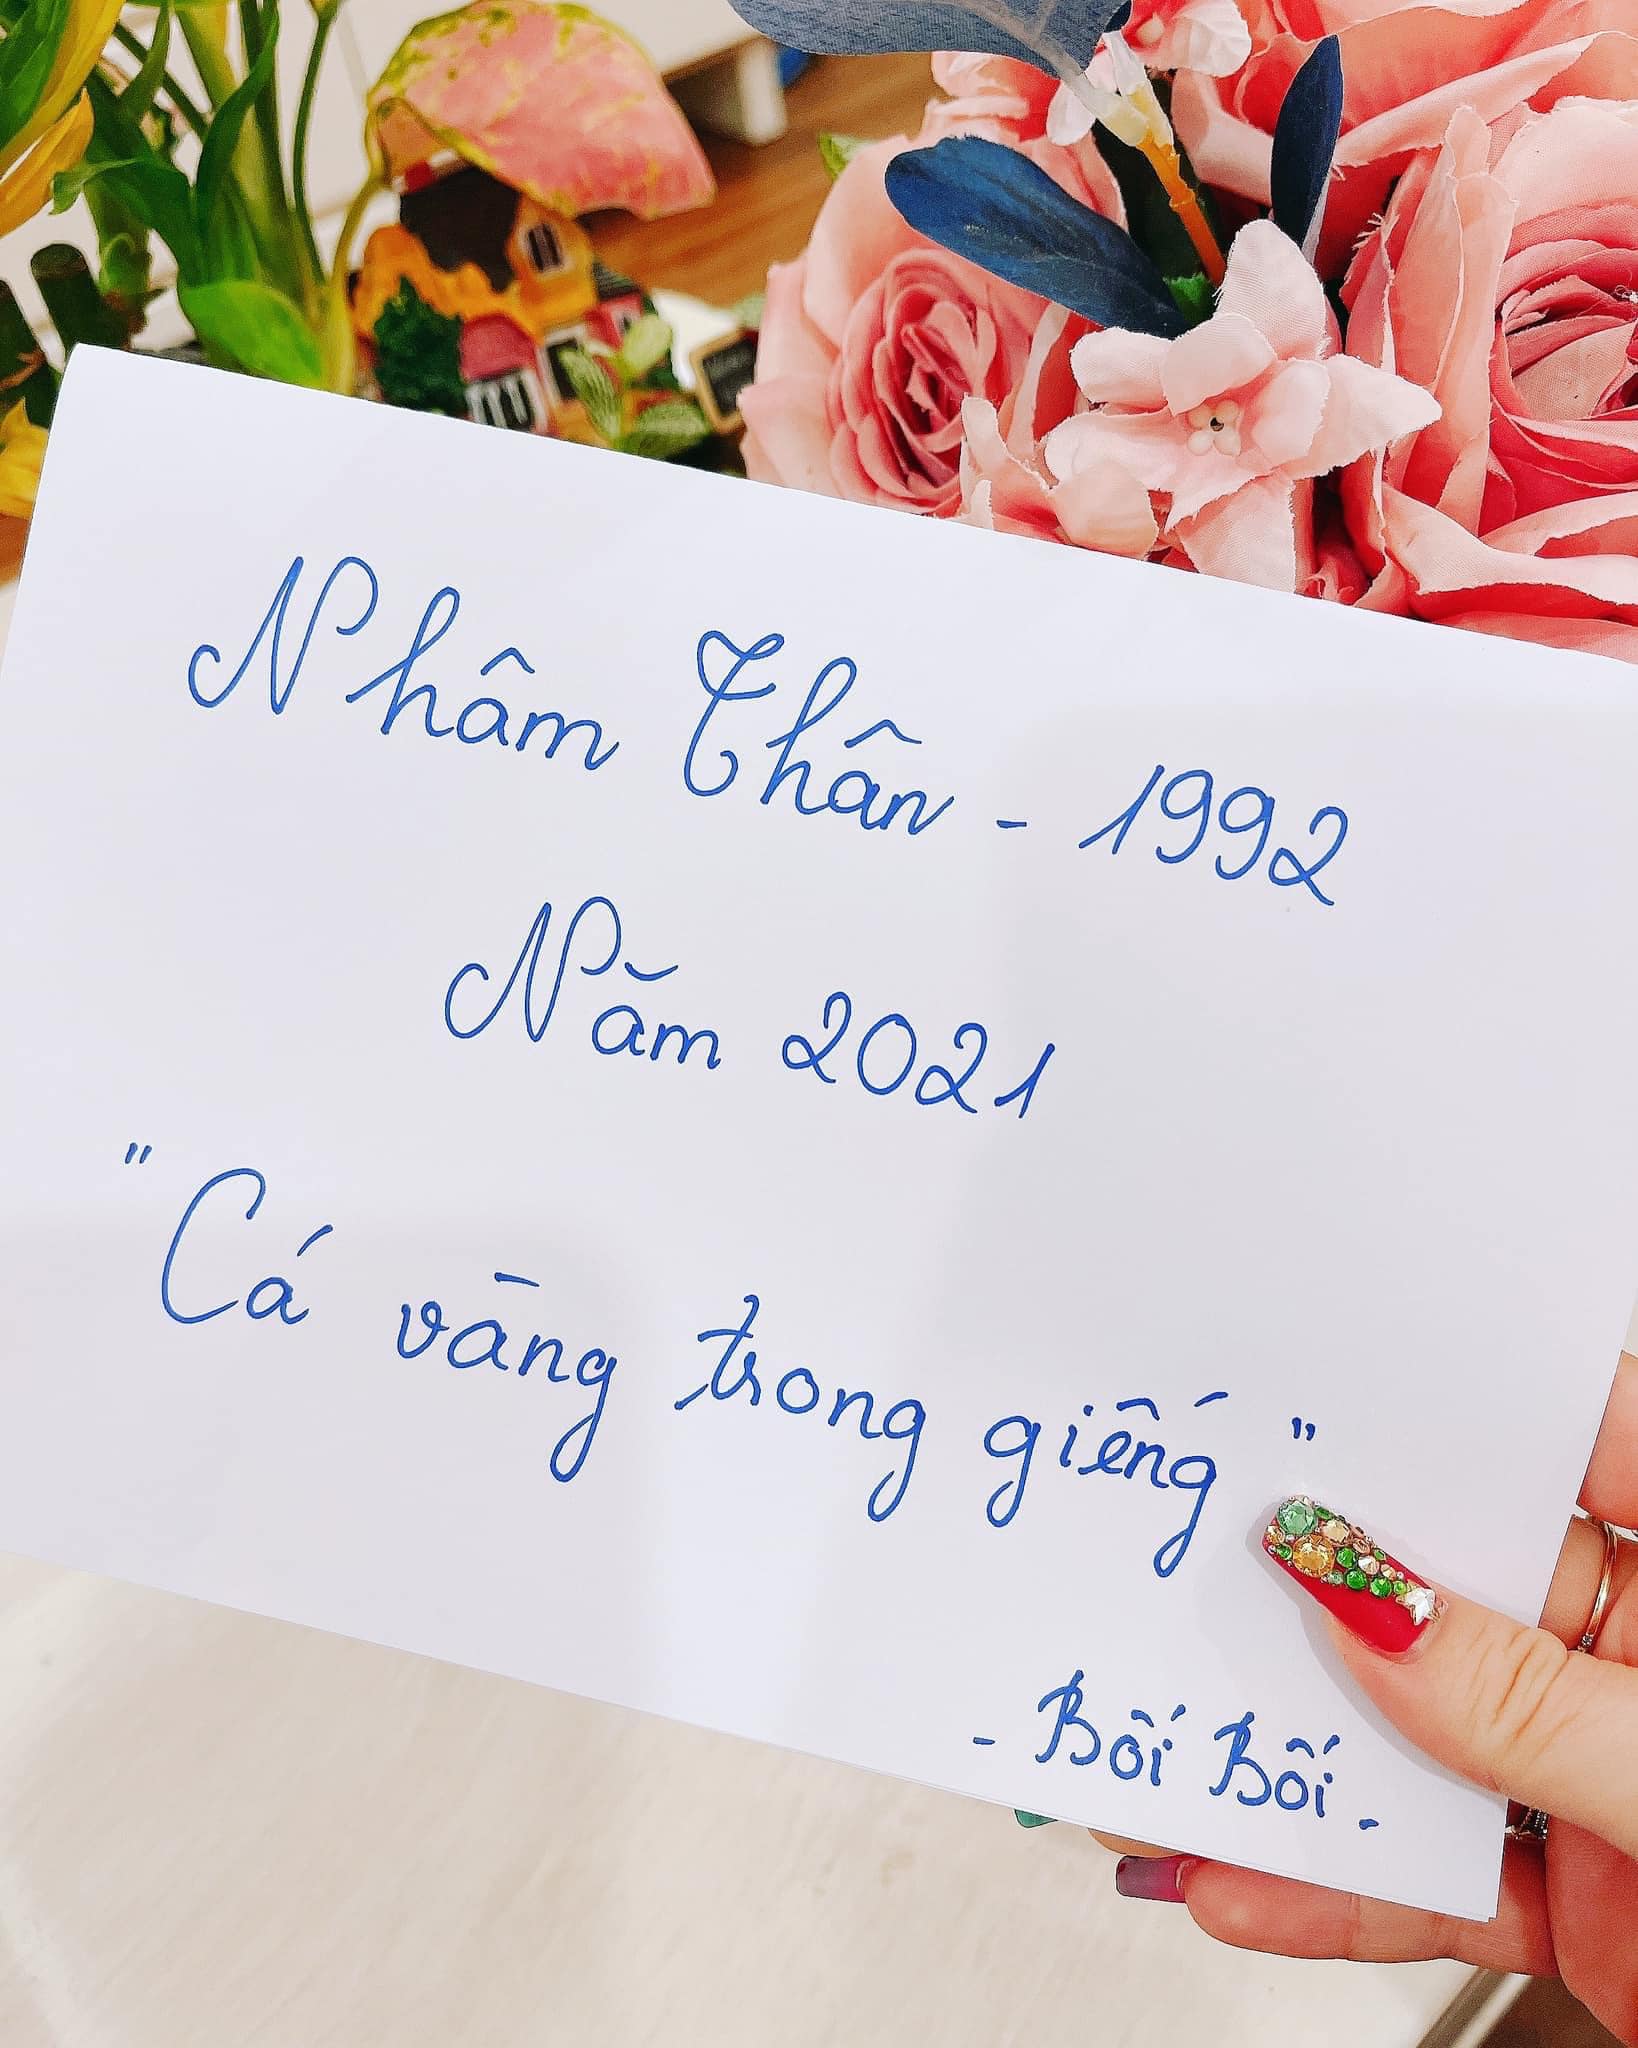 Nhâm Thân - 1992
Năm 2021
"Cá vàng trong giếng"
- Bối Bối -